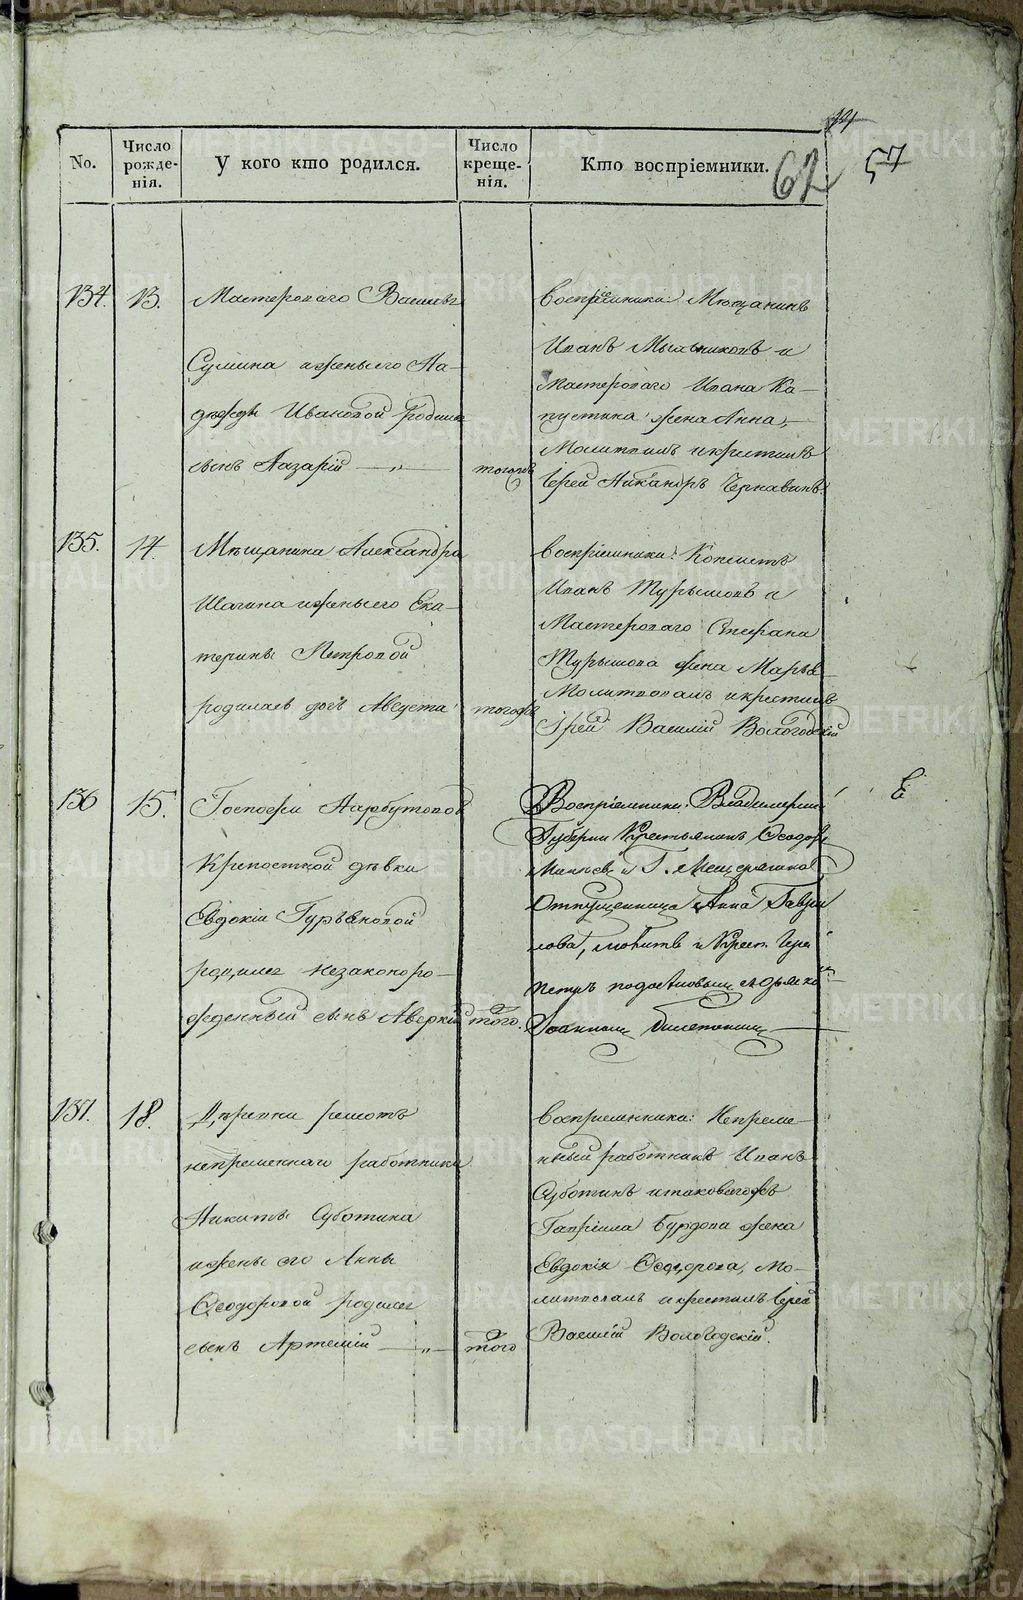 62
57
No.
Число рожде-
нія.
У кого кто родился.
Число креще-
нія.
Кто воспріемники.
134.
13.
Мастероваго
Сумина и жены его На-
дежды Ивановой родился
сынъ Лазарій
тогожъ
воспріемники: Мѣщанинъ
Иванъ Мыльниковъ и
Мастероваго Ивана Ка-
пустина жена Анна,
Молитвилъ и крестилъ
Іерей Никандръ Чернавинъ.
135.
14.
Мѣщанина Александра
Шагина и жены его Ека-
терины Петровой
родилась дочь Августа
тогожъ
воспріемники: Копеистъ
Иванъ Турышовъ и
Мастероваго Стефана
Турышова жена Марья
Молитвовалъ и крестилъ
Іерей Василій Вологодскій
136
15.
Госпожи
Крепостной дѣвки
Евдокіи Гурьяновой
родился незаконоро-
жденный сынъ Аверкій
того.
Воспріемники: Владимирской
Губерніи Крестьянинъ Ѳеодоръ
и Г.
Отпущенница Анна Гаври
лова, молитв: и Крест: Іерей
Петръ
Іоанномъ
Е
137.
18.
непременнаго работника
Никиты Суботина
и жены его Анны
Ѳеодоровой родился
сынъ Артемій
того
воспріемники: Непреме-
нный работникъ Иванъ
Суботинъ и таковагожъ
Гавріила Бурдова жена
Евдокія Ѳеодорова, Мо-
литвовалъ и крестилъ Іерей
Василій Вологодскій.
METRIKI.GASO-URAL.RU